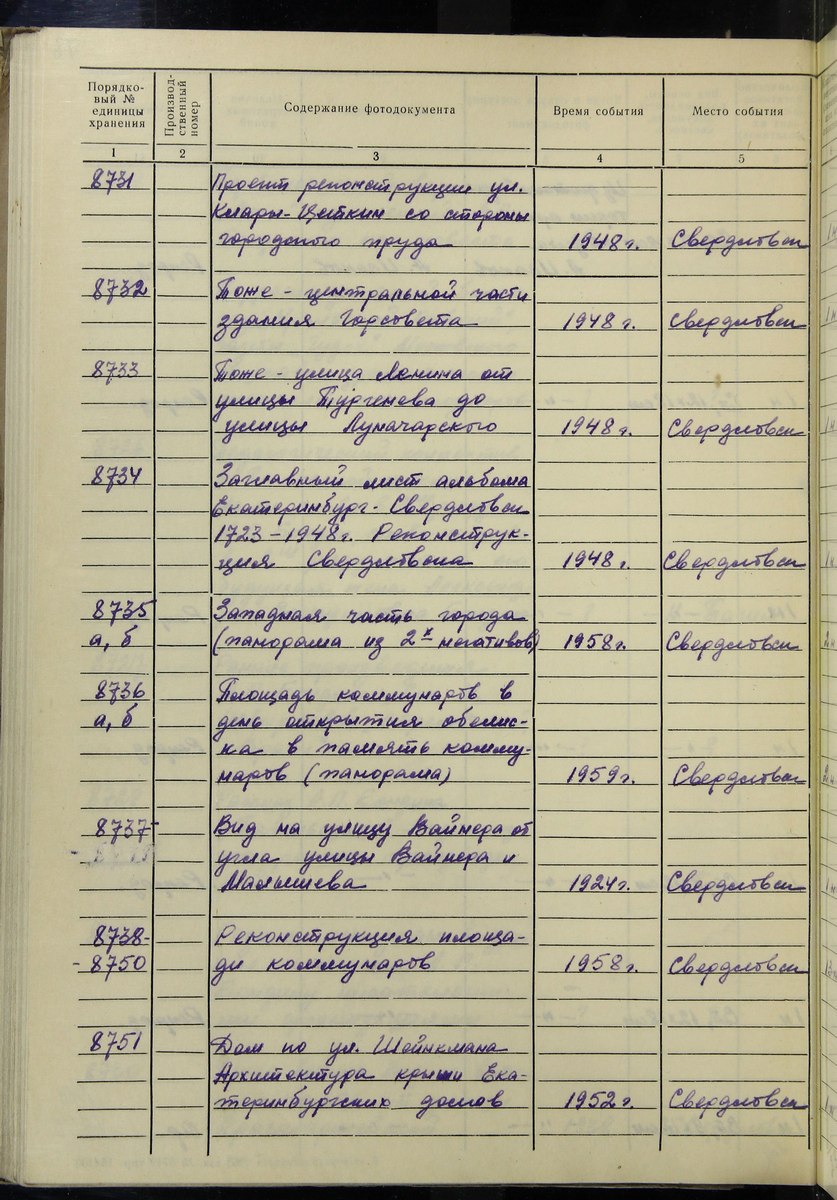 Порядко-
вый №
единицы
хранения
Производ-
ственный
номер
Содержание фотодокумента
Время события
Место события
1 2 3 4 5
8731 Проект реконструкции ул.
Клары-Цеткин со стороны
городского пруда 1948 г. Свердловск
8732 Тоже - центральной части
здания Горсовета 1948 г. Свердловск
8733 Тоже - улица Ленина от
улицы Тургенева до
улицы Луначарского 1948 г. Свердловск
8734 Заглавный лист альбома
Екатеринбург - Свердловск
1723-1948г. Реконструк-
ция Свердловска 1948 г. Свердловск
8735 Западная часть города
а, б (панорама из 2х негативов) 1958г. Свердловск
8736 Площадь коммунаров в
а, б день открытия обелис-
ка в память комму-
наров (панорама) 1959г. Свердловск
8737 Вид на улицу Вайнера от
угла улицы Вайнера и
Малышева 1924г. Свердловск
8738- Реконструкция площа-
-8750 ди коммунаров 1958г. Свердловск
8751 Дом по ул. Шейнкмана
Архитектура крыши Ека-
теринбургских домов 1952г. Свердловск